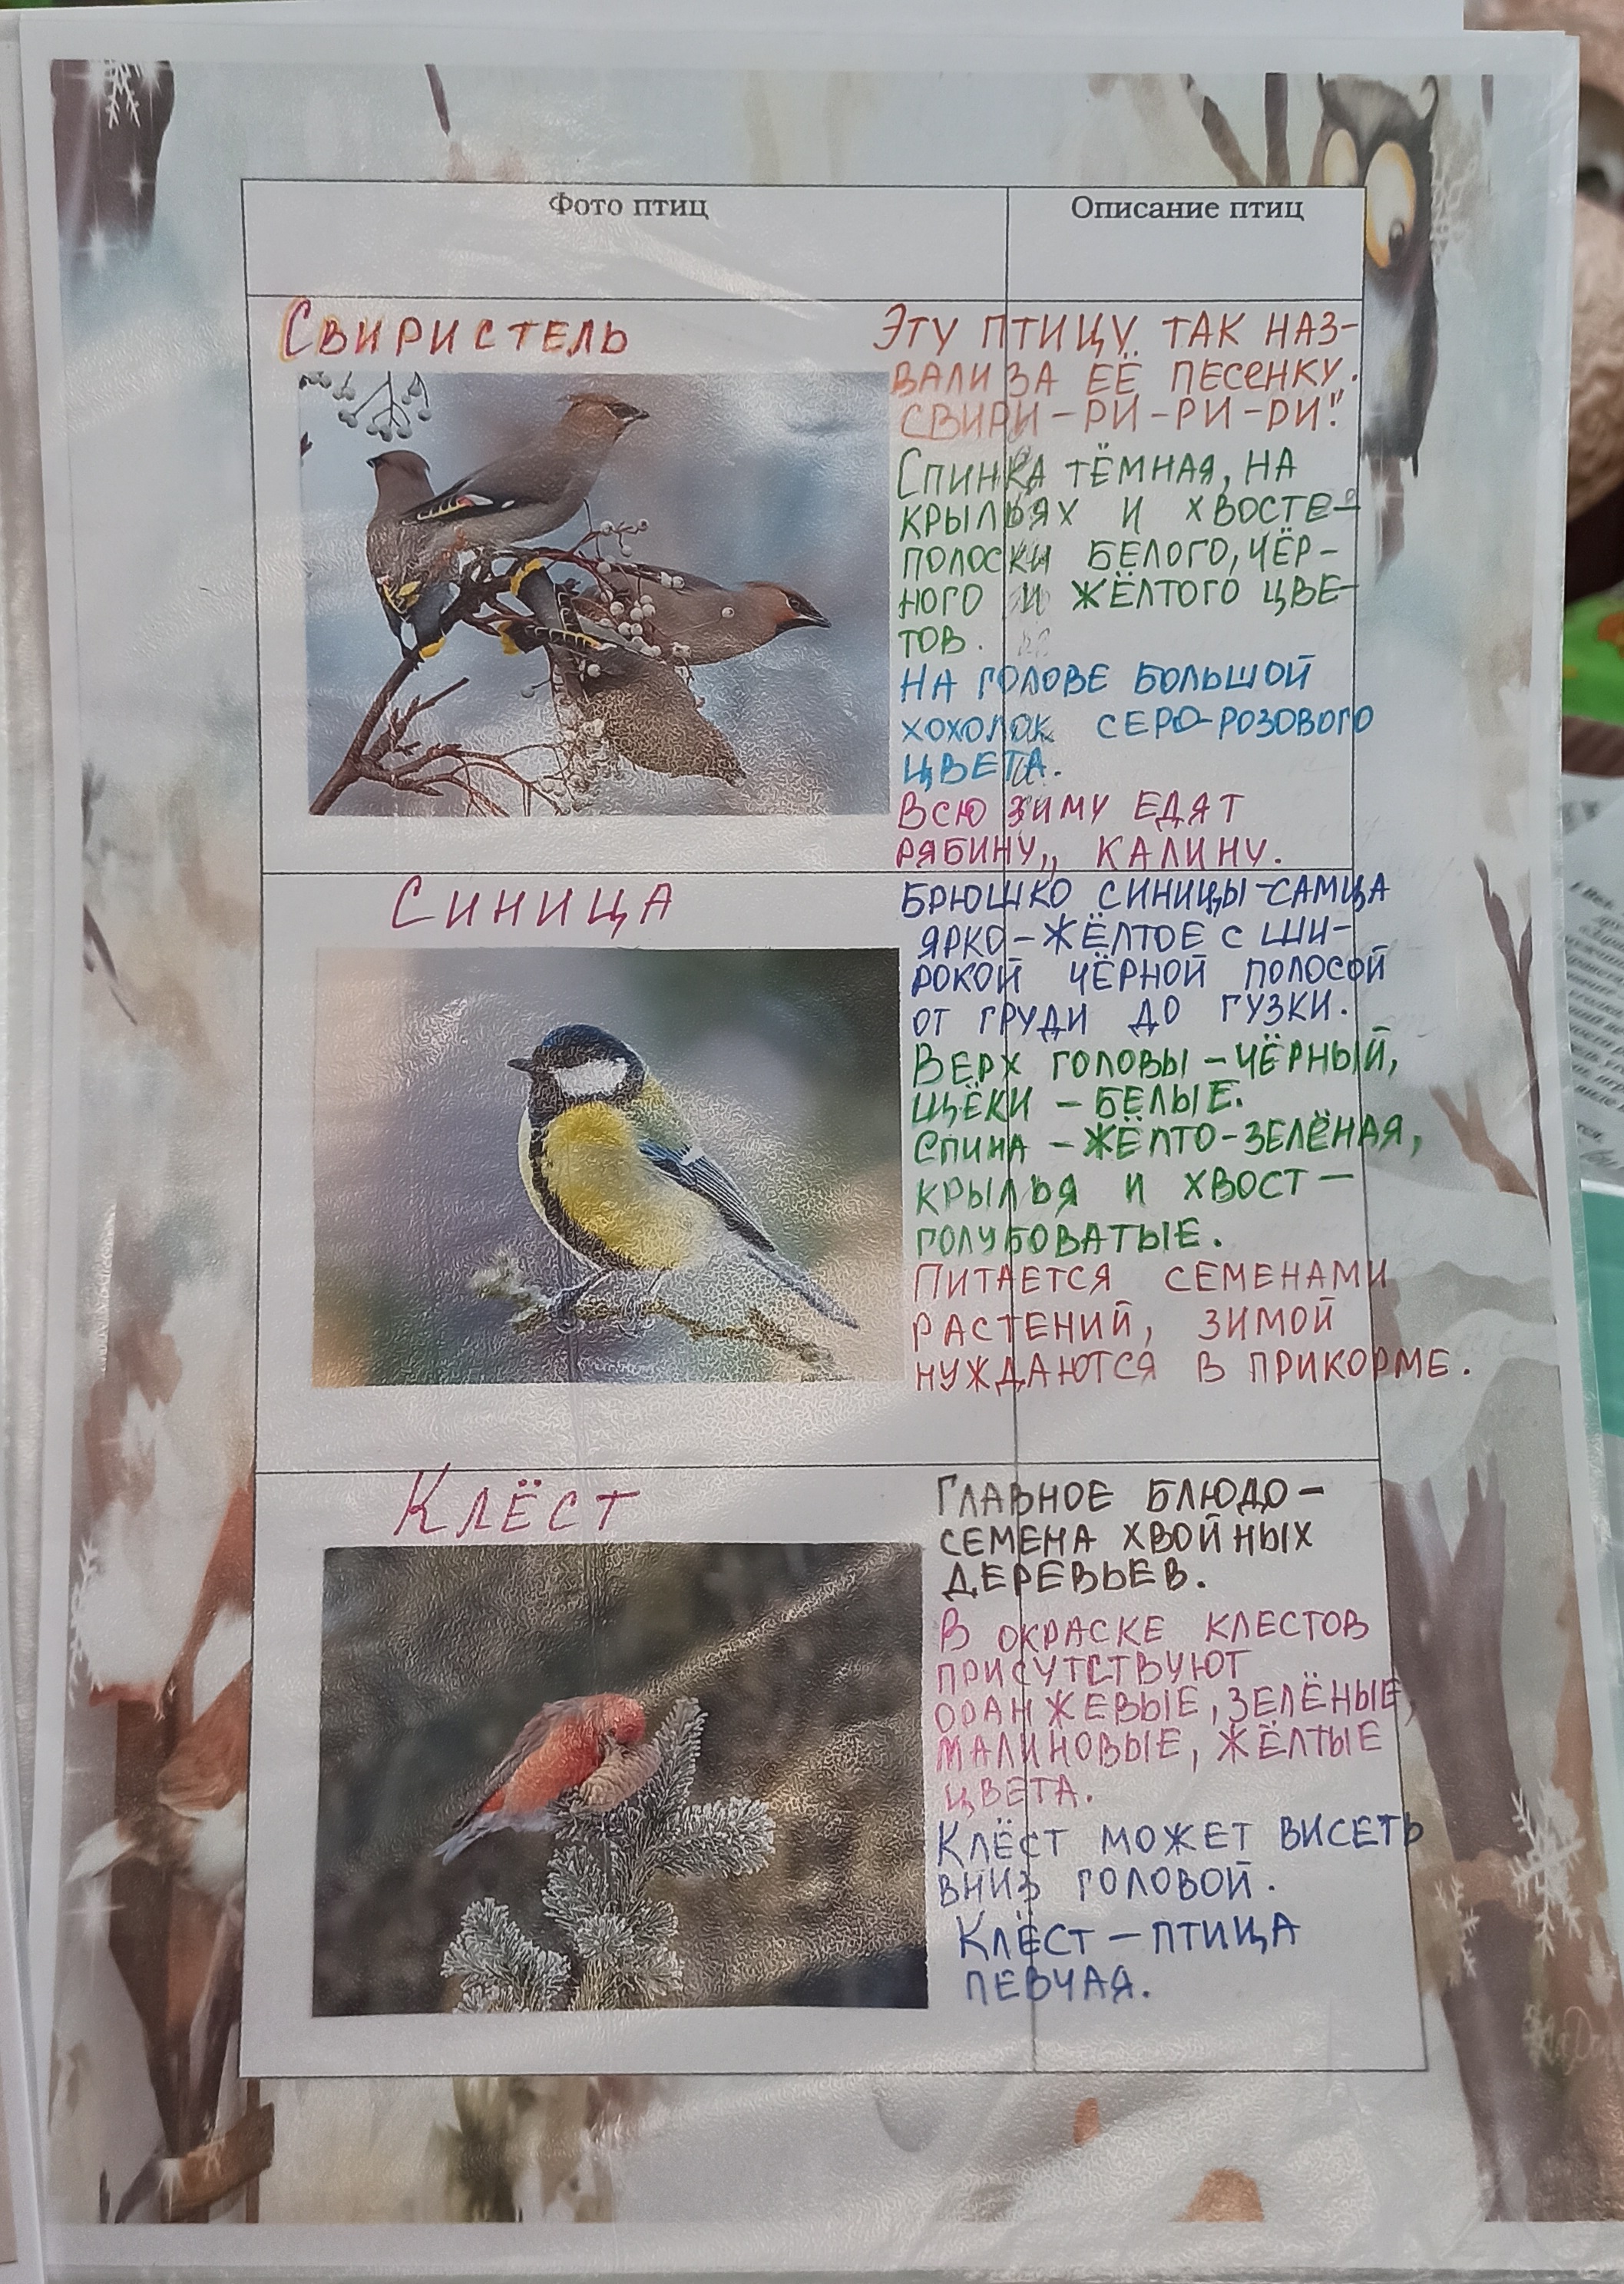 Фото птиц
Описание птиц
Свиристель
Эту птицу так наз-
вали за её песенку.
свири-ри-ри-ри!"
Спинка тёмная, на
крыльях и хвосте-
полоски белого, чёр-
ного и жёлтого цве-
тов.
На голове большой
хохолок серо-розового
цвета.
Всю зиму едят
рябину,, калину.
Синица
Брюшко синицы-самца
ярко-жёлтое с ши-
рокой чёрной полосой
от груди до гузки.
Верх головы - чёрный,
щёки - белые.
Спина - жёлто-зелёная,
крылья и хвост -
голубоватые.
Питается семенами
растений, зимой
нуждаются в прикорме.
Клёст
Главное блюдо-
семена хвойных
деревьев.
В окраске клестов
присутствуют
оранжевые, зелёные,
малиновые, жёлтые
цвета.
Клёст может висеть
вниз головой.
Клёст - птица
певчая.